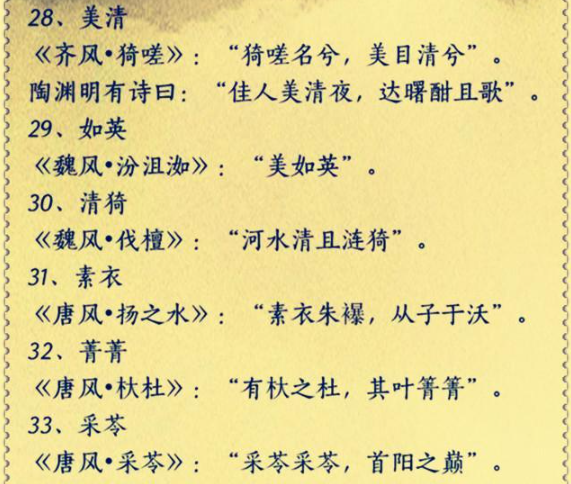 28、美清
《齐风•猗嗟》：“猗嗟名兮，美目清兮”。
陶渊明有诗曰：“佳人美清夜，达曙酣且歌”。
29、如英
《魏风•汾沮洳》：“美如英”。
30、清猗
《魏风•伐檀》：“河水清且涟猗”。
31、素衣
《唐风•扬之水》：“素衣朱襮，从子于沃”。
32、菁菁
《唐风•杕杜》：“有杕之杜，其叶菁菁”。
33、采苓
《唐风•采苓》：“采苓采苓，首阳之巅”。